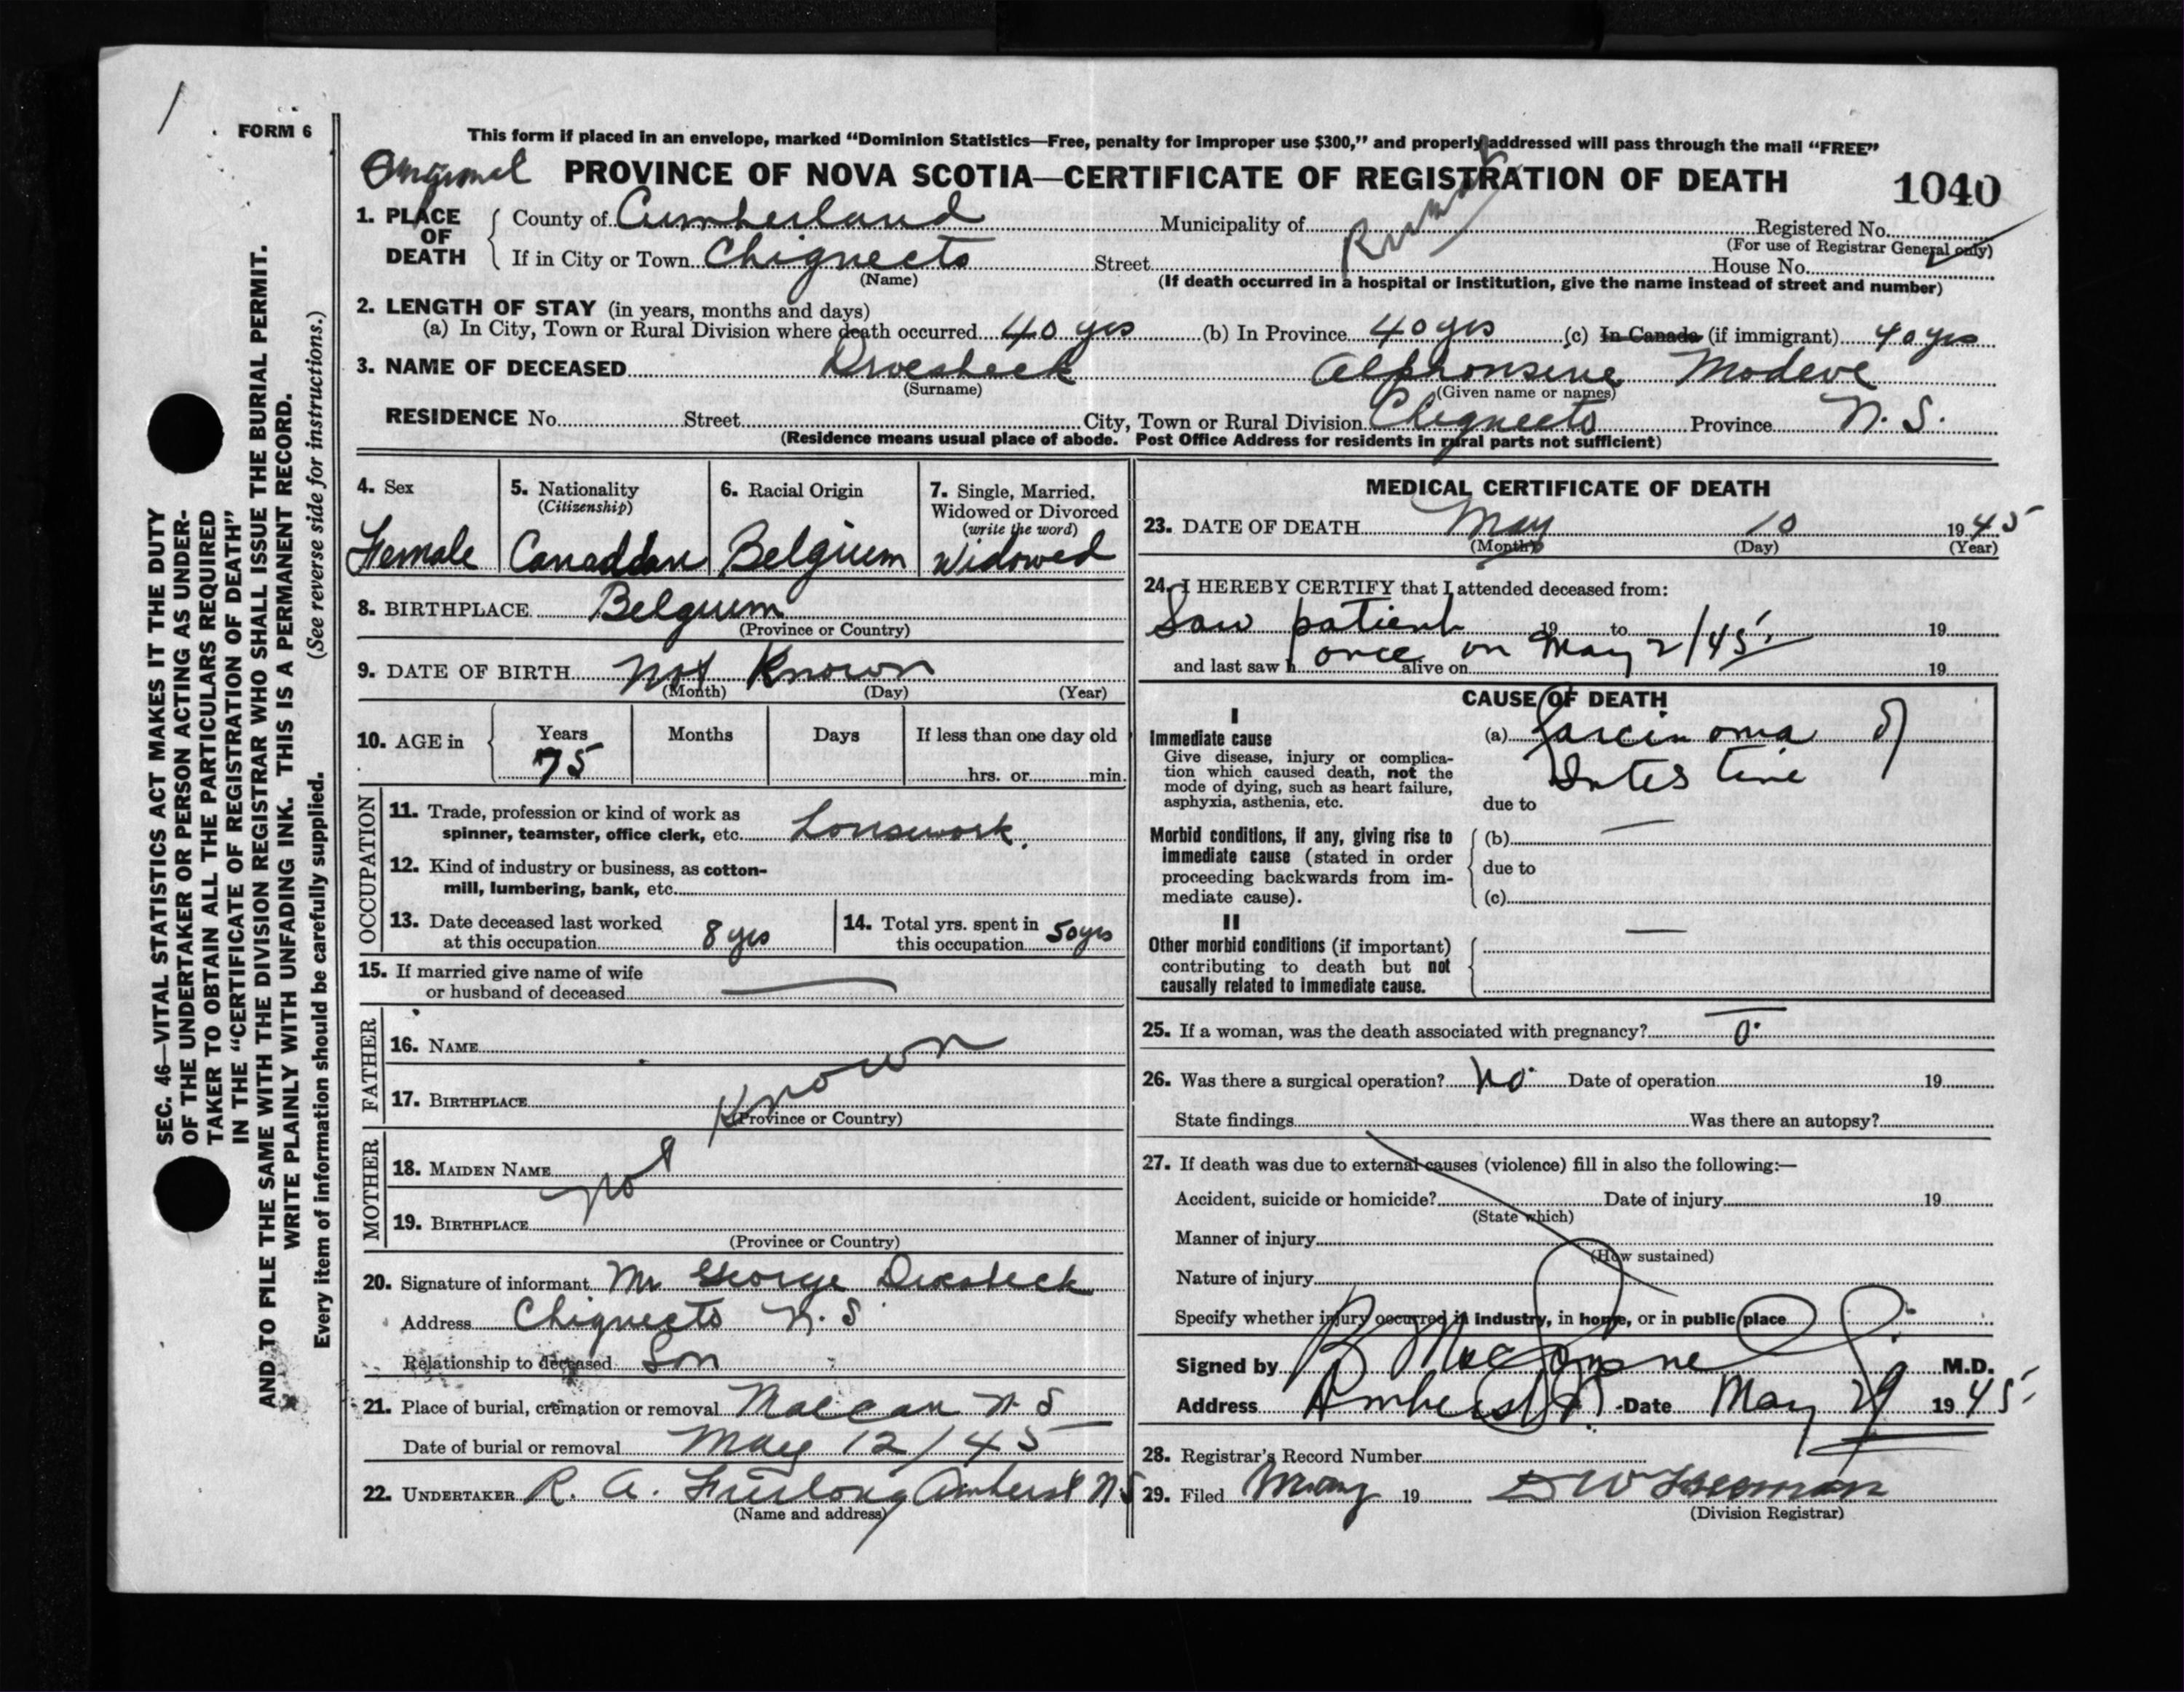 FORM 6
This form if placed in an envelope, marked "Dominion Statistics—Free, penalty for improper use $300," and properly addressed will pass through the mail "FREE"
Original PROVINCE OF NOVA SCOTIA—CERTIFICATE OF REGISTRATION OF DEATH 1040
1. PLACE OF DEATH County of Cumberland Municipality of Registered No.
(For use of Registrar General only)
If in City or Town Chignecto Street House No.
(Name) (If death occurred in a hospital or institution, give the name instead of street and number)
2. LENGTH OF STAY (in years, months and days)
(a) In City, Town or Rural Division where death occurred 40 yrs (b) In Province 40 yrs (c) In Canada (if immigrant) 40 yrs
3. NAME OF DECEASED Droesbeck Alphonsine
(Surname) (Given name or names)
RESIDENCE No. Street City, Town or Rural Division Chignecto Province N. S.
(Residence means usual place of abode. Post Office Address for residents in rural parts not sufficient)
4. Sex 5. Nationality 6. Racial Origin 7. Single, Married,
(Citizenship) Widowed or Divorced
(write the word)
Female Canaddan Belgium Widowed
8. BIRTHPLACE Belgium
(Province or Country)
9. DATE OF BIRTH Not Known
(Month) (Day) (Year)
10. AGE in Years Months Days If less than one day old
75 hrs. or min.
OCCUPATION
11. Trade, profession or kind of work as
spinner, teamster, office clerk, etc. Housework.
12. Kind of industry or business, as cotton-
mill, lumbering, bank, etc.
13. Date deceased last worked 14. Total yrs. spent in
at this occupation 8 yrs this occupation 50 yrs
15. If married give name of wife
or husband of deceased —
FATHER
16. NAME
17. BIRTHPLACE
(Province or Country)
MOTHER
18. MAIDEN NAME
Not Known
19. BIRTHPLACE
(Province or Country)
20. Signature of informant Mr George Droesbeck
Address Chignecto N. S
Relationship to deceased Son
21. Place of burial, cremation or removal Maccan N. S
Date of burial or removal May 12/45
22. UNDERTAKER R. A. Furlong Amherst N S
(Name and address)
MEDICAL CERTIFICATE OF DEATH
23. DATE OF DEATH May 10 1945
(Month) (Day) (Year)
24. I HEREBY CERTIFY that I attended deceased from:
Saw patient 19 to 19
once on May 2/45.
and last saw h alive on 19
CAUSE OF DEATH
I
Immediate cause (a) Carcinoma of
Intestine
Give disease, injury or complica-
tion which caused death, not the
mode of dying, such as heart failure,
asphyxia, asthenia, etc. due to
Morbid conditions, if any, giving rise to (b) —
immediate cause (stated in order
proceeding backwards from im- due to
mediate cause). (c)
II
Other morbid conditions (if important) —
contributing to death but not
causally related to immediate cause.
25. If a woman, was the death associated with pregnancy? 0.
26. Was there a surgical operation? No. Date of operation 19
State findings Was there an autopsy?
27. If death was due to external causes (violence) fill in also the following:—
Accident, suicide or homicide? Date of injury 19
(State which)
Manner of injury
(How sustained)
Nature of injury
Specify whether injury occurred in industry, in home, or in public place
Signed by M.D.
Address Amherst Date May 29 1945
28. Registrar's Record Number
29. Filed May 19
(Division Registrar)
SEC. 46—VITAL STATISTICS ACT MAKES IT THE DUTY
OF THE UNDERTAKER OR PERSON ACTING AS UNDER-
TAKER TO OBTAIN ALL THE PARTICULARS REQUIRED
IN THE "CERTIFICATE OF REGISTRATION OF DEATH"
AND TO FILE THE SAME WITH THE DIVISION REGISTRAR WHO SHALL ISSUE THE BURIAL PERMIT.
WRITE PLAINLY WITH UNFADING INK. THIS IS A PERMANENT RECORD.
Every item of information should be carefully supplied. (See reverse side for instructions.)